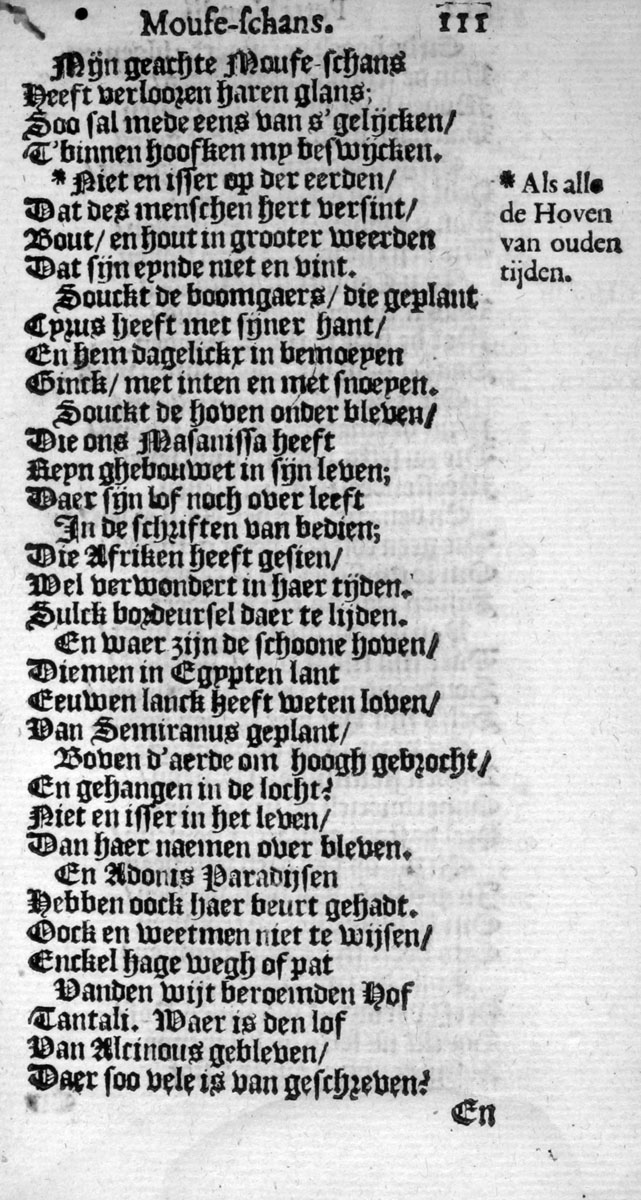 Mouse-schans. 111
Mijn geachte Mouse-schans
Heeft verlooren haren glans;
Soo sal mede eens van s'gelijcken/
T'binnen hoofken my beswijcken.
* Niet en isser op der eerden/
Dat des menschen hert versint/
Bout/ en hout in grooter weerden
Dat sijn eynde niet en vint.
Souckt de boomgaers/ die geplant
Cyrus heeft met sijner hant/
En hem dagelickx in bemoeyen
Ginck/ met inten en met snoeyen.
Souckt de hoven onder bleven/
Die ons Masanissa heeft
Reyn ghebouwet in sijn leven;
Daer sijn lof noch over leeft
In de schriften van bedien;
Die Afriken heeft gesien/
Wel verwondert in haer tijden.
Sulck bordeursel daer te lijden.
En waer zijn de schoone hoven/
Diemen in Egypten lant
Eeuwen lanck heeft weten loven/
Van Semiranus geplant/
Boven d'aerde om hoogh gebrocht/
En gehangen in de locht?
Niet en isser in het leven/
Dan haer naemen over bleven.
En Adonis Paradijsen
Hebben oock haer beurt gehadt.
Oock en weetmen niet te wijsen/
Enckel hage wegh of pat
Vanden wijt beroemden Hof
Tantali. Waer is den lof
Van Alcinous gebleven/
Daer soo vele is van geschreven?
En
* Als alle
de Hoven
van ouden
tijden.